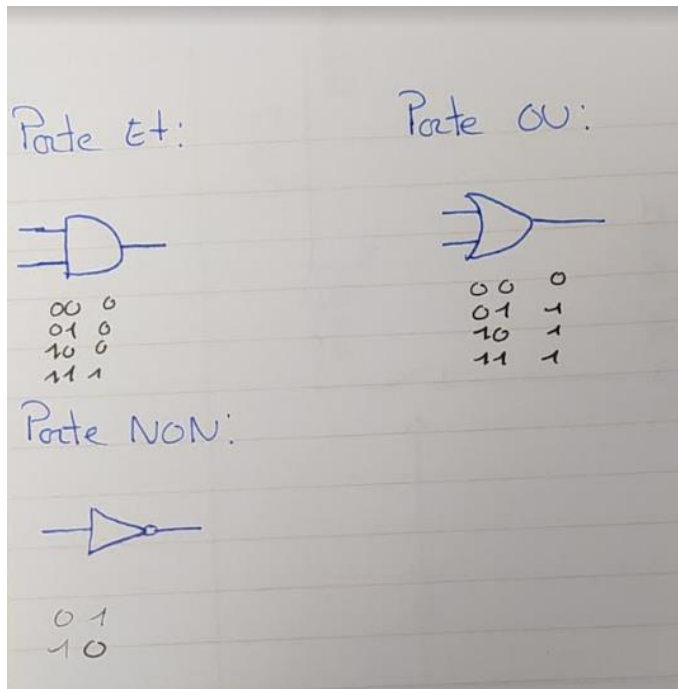 Porte Et:
00 0
01 0
10 0
11 1
Porte OU:
00 0
01 1
10 1
11 1
Porte NON:
0 1
1 0